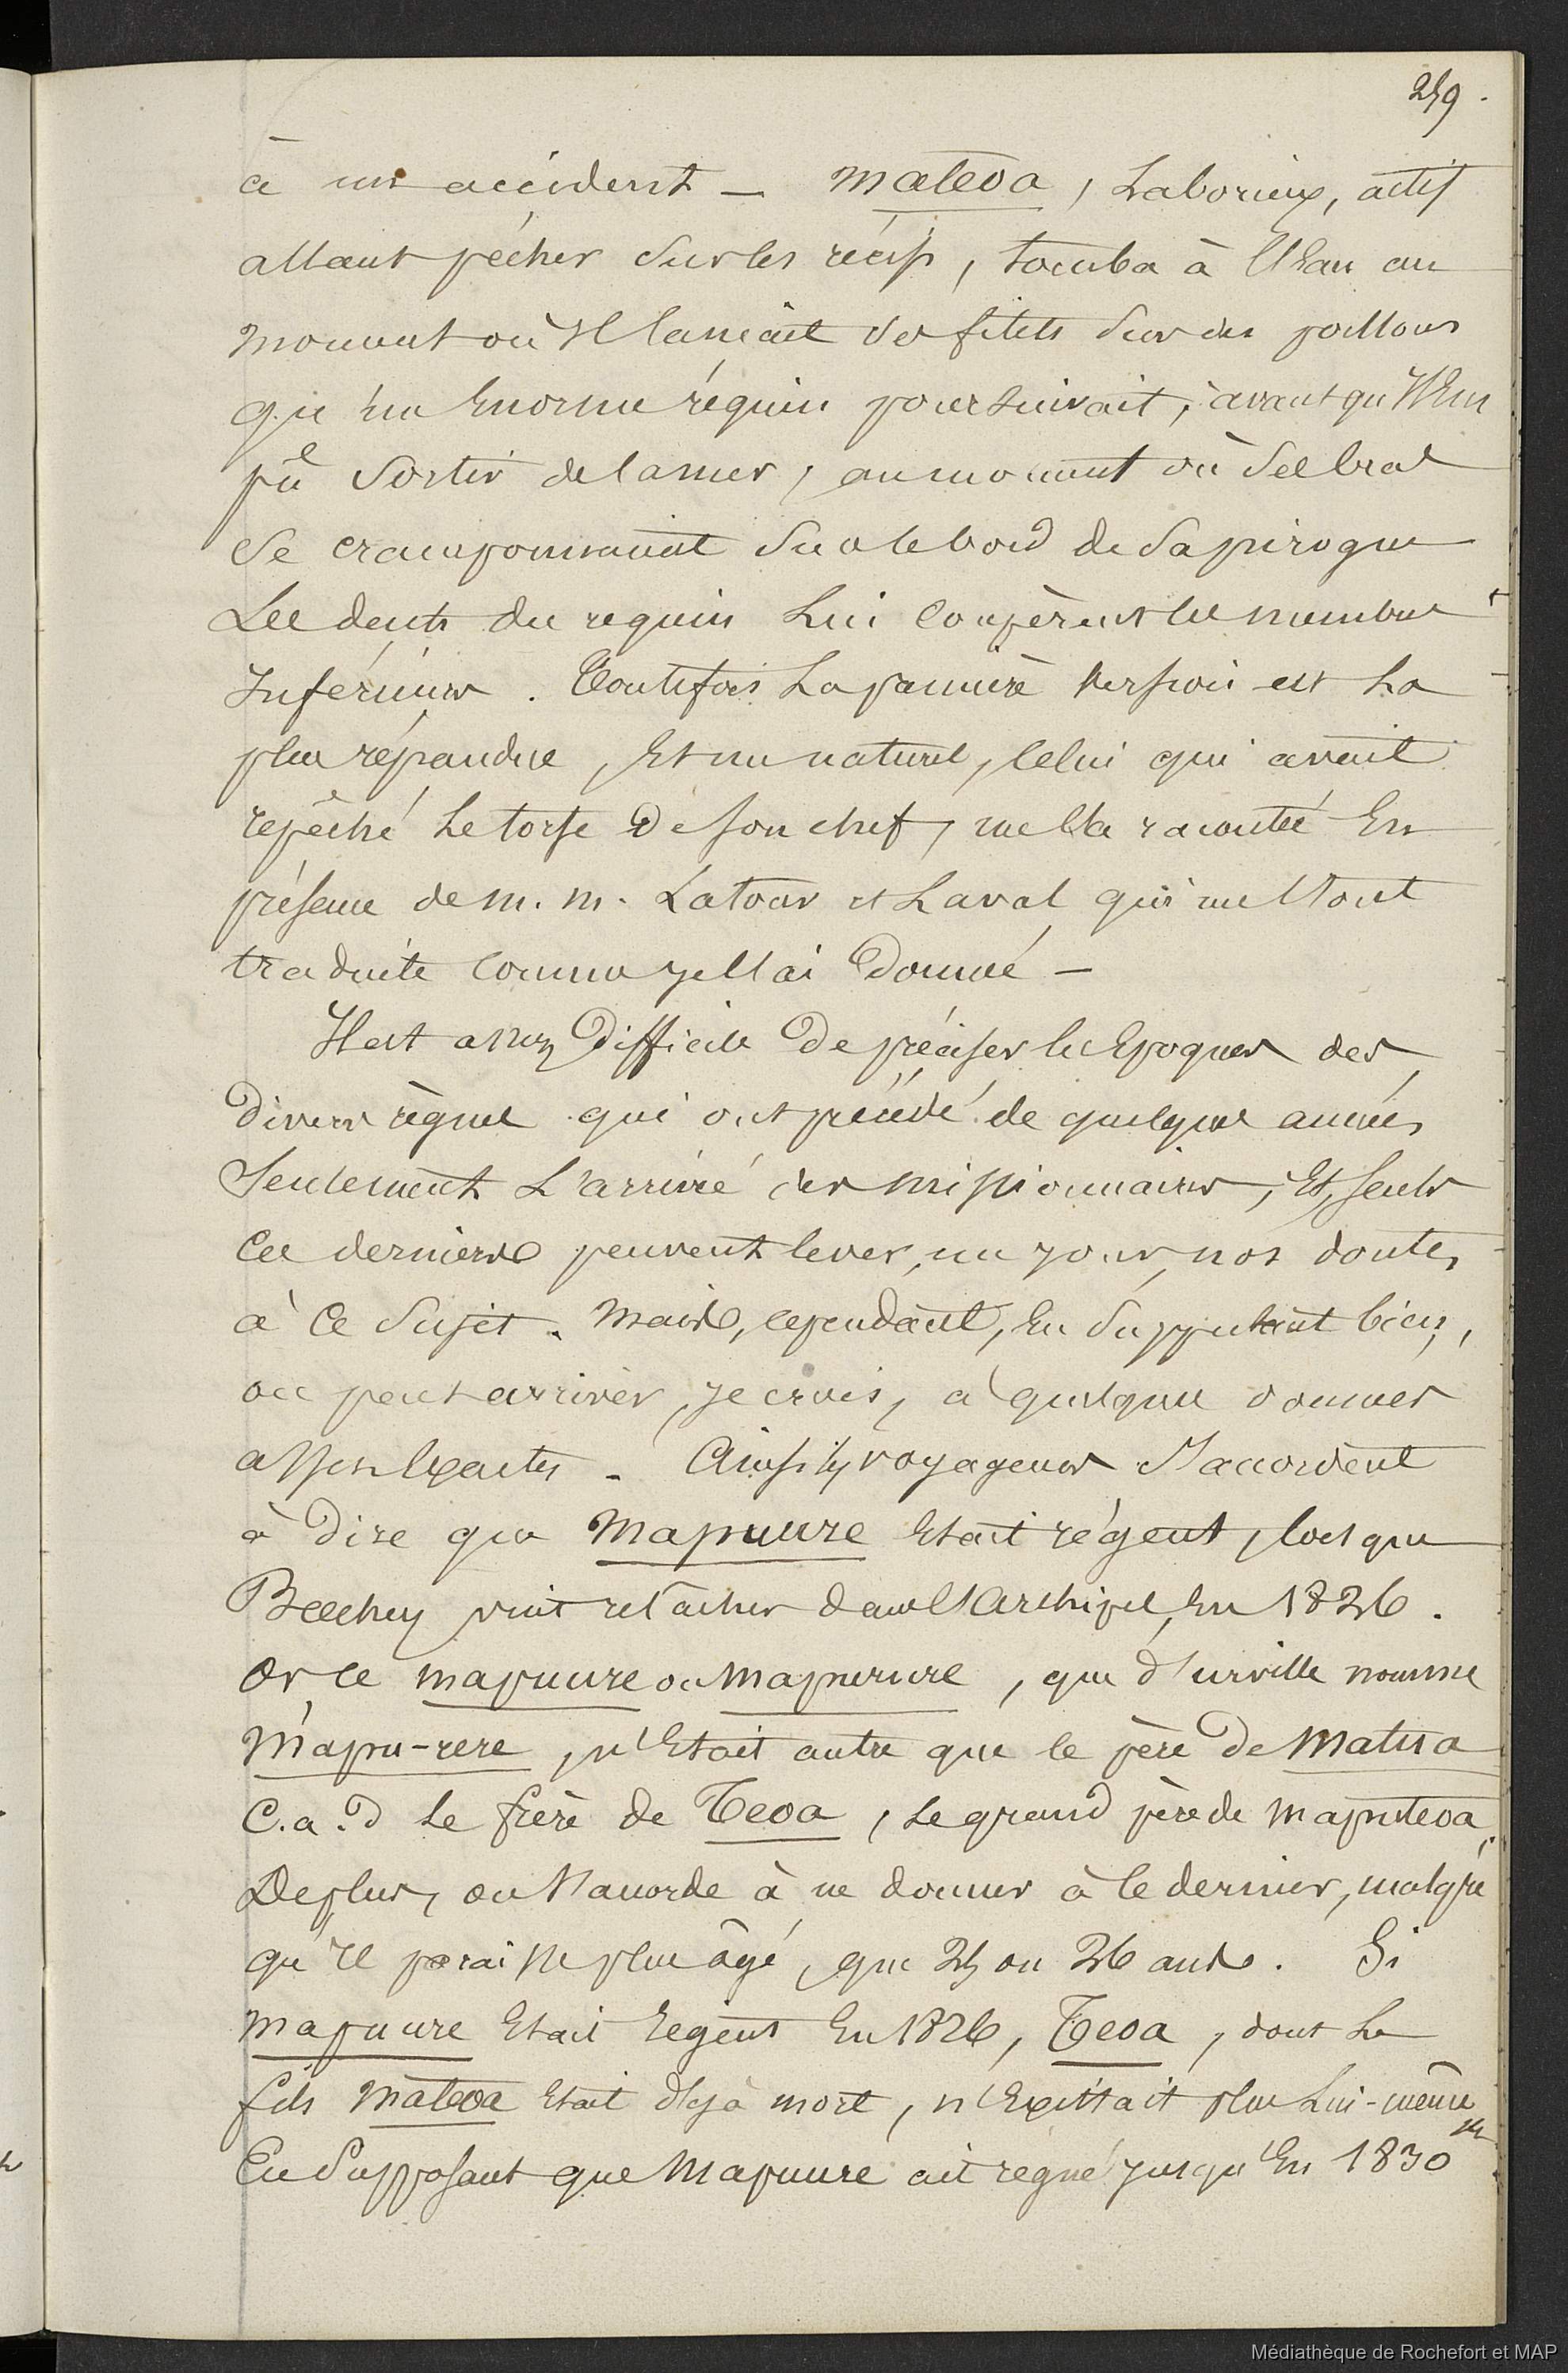 259.
à un accident — Mateoa, Laborieux, actif
allant pêcher sur les récifs, tomba à l'Eau au
moment où Il lançait ses filets sur des poissons
qu'un Enorme réquin poursuivait; avant qu'Il eut
pû sortir de la mer, au moment où Ses bras
se cramponnaient sur le bord de Sa pirogue
Les dents du requin Lui Coupèrent les membres
Inférieurs. Toutefois La première version est La
plus répandue, Et un naturel, Celui qui avait
repêché Le torse De son chef, me l'a racontée En
présence de m. m. Latour et Laval qui me l'ont
traduite Comme je l'ai Donné —
Il est assez Difficile De préciser les Epoques des
Divers règnes qui ont précédé de quelques années
Seulement L'arrivée des missionnaires, Et, seuls
Ces derniers peuvent lever, un jour, nos doutes
à Ce Sujet. Mais, cependant, En Supputant bien,
on peut arriver, je crois, à quelques données
assez Exactes. Ainsi les voyageurs S'accordent
à Dire que Mapuure Etait régent, lorsque
Beechey vint relâcher dans l'Archipel, En 1826.
Or Ce mapuure ou Mapurure, que d'urville nomme
Mapu-rere, n'Etait autre que le père De Matua
C. a. D Le frère de Teoa, Le grand père de Maputeoa.
De plus, on s'accorde à ne donner à Ce dernier, malgré
qu'Il paraisse plus âgé, que 25 ou 26 ans. Si
Mapuure Etait Régent En 1826, Teoa, dont Le
fils Mateoa Etait déjà mort, n'Existait plus Lui-même
En Supposant que Mapuure ait régné jusqu'En 1830